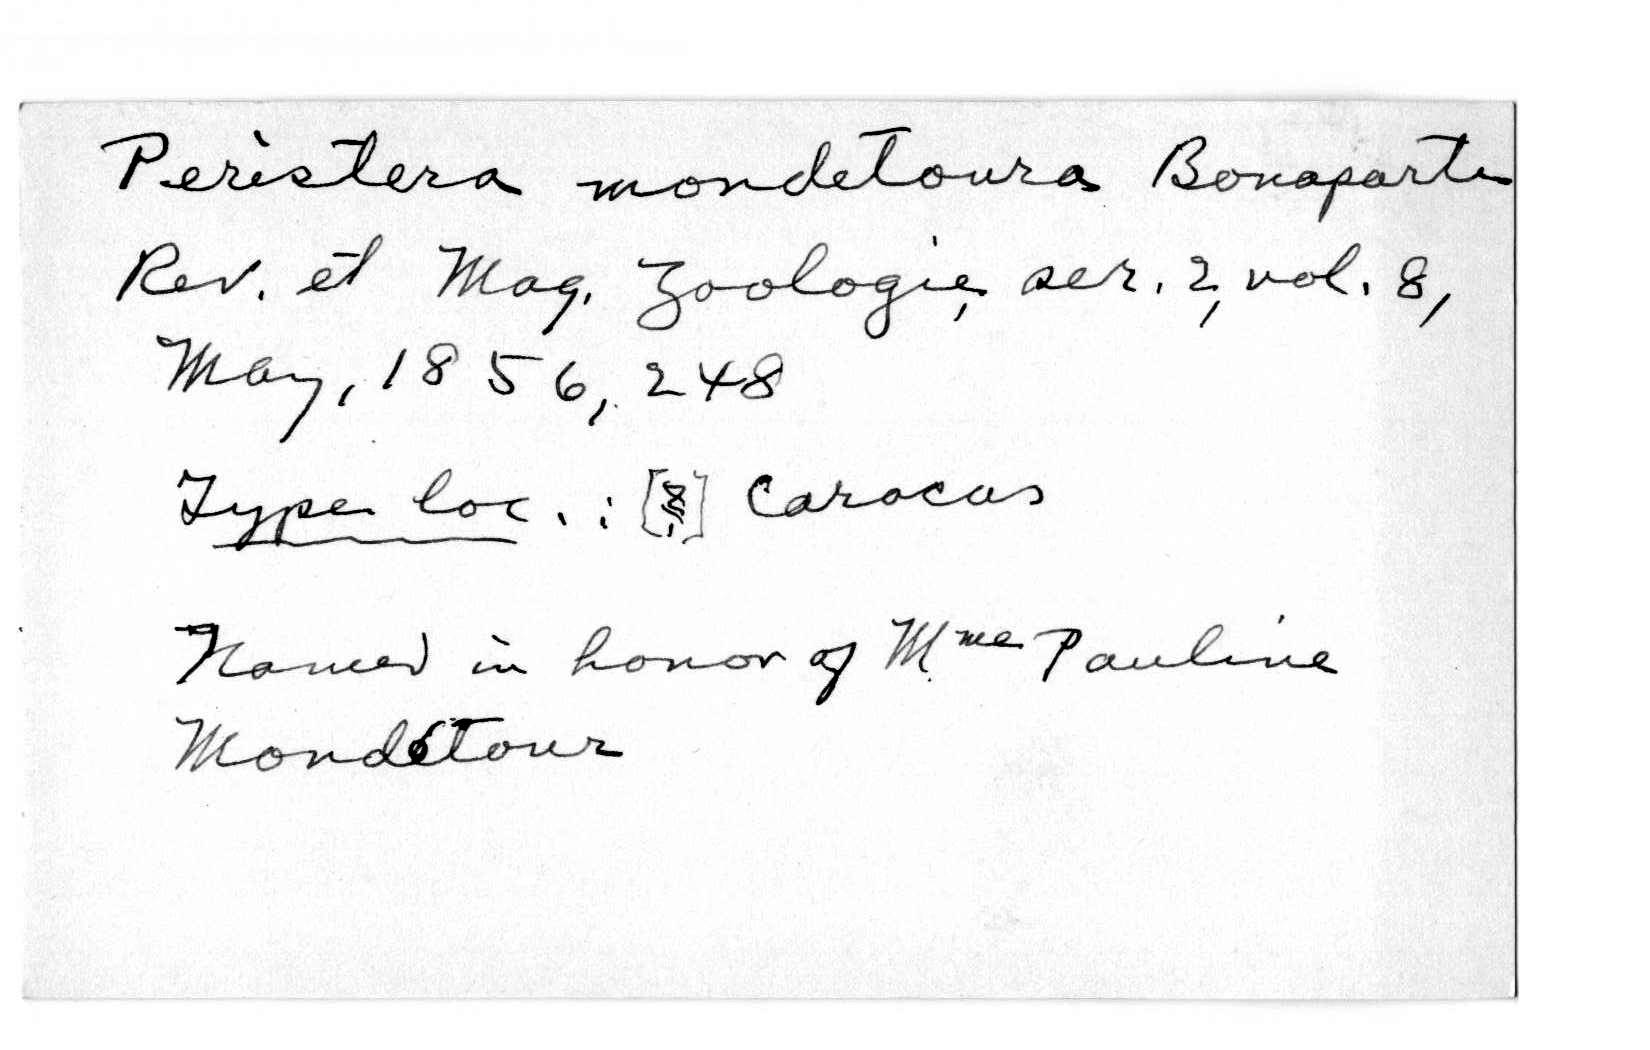 Peristera mondetoura Bonaparte
Rev. et Mag. Zoologie, ser. 2, vol. 8,
May, 1856, 248
Type loc. : [] Caracas
Named in honor of Mme Pauline
Mondétour